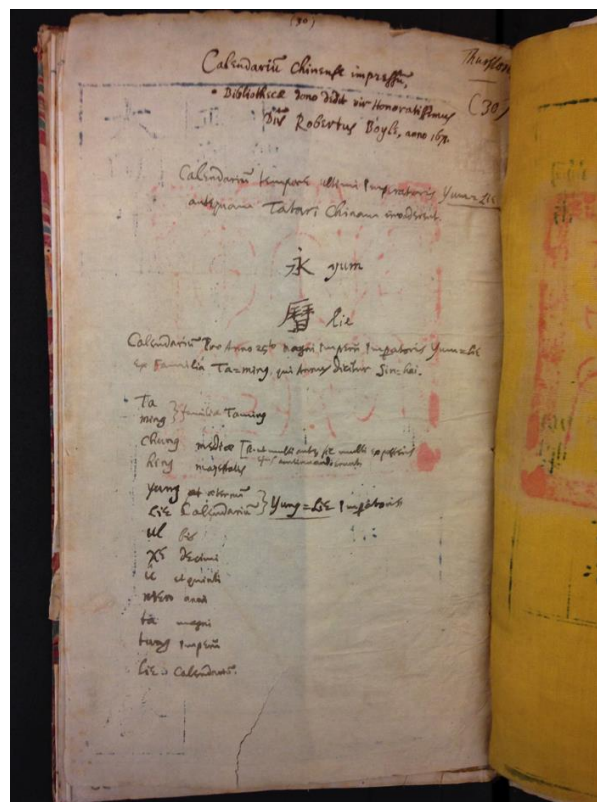 (30)
Calendariū Chinense impressū,
Bibliothecæ dono dedit vir Honoratissimus
Dñs Robertus Boyle, anno 167
(30)
Calendariū temporis ultimi Imperatoris Yum=Lie
antequam Tatari Chinam invaderent
永 yum
曆 lie
Calendariū Pro Anno 25to magni Imperii Imperatoris Yum=Lie
ex Familia Ta=ming, qui Annus dicitur Sin=hai.
Ta
ming } familia Taming
Chung mediæ
hing majestatis
yung æternū
Lie Calendariū } Yung=Lie Imperatoris
ul bis
xe decimi
u et quinti
nien anni
ta magni
tung Imperii
lie Calendariū.